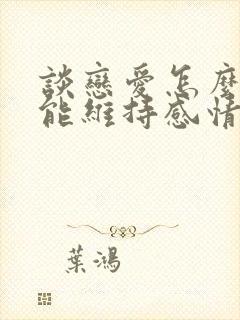 談戀愛怎麼
能維持感情
葉鴻